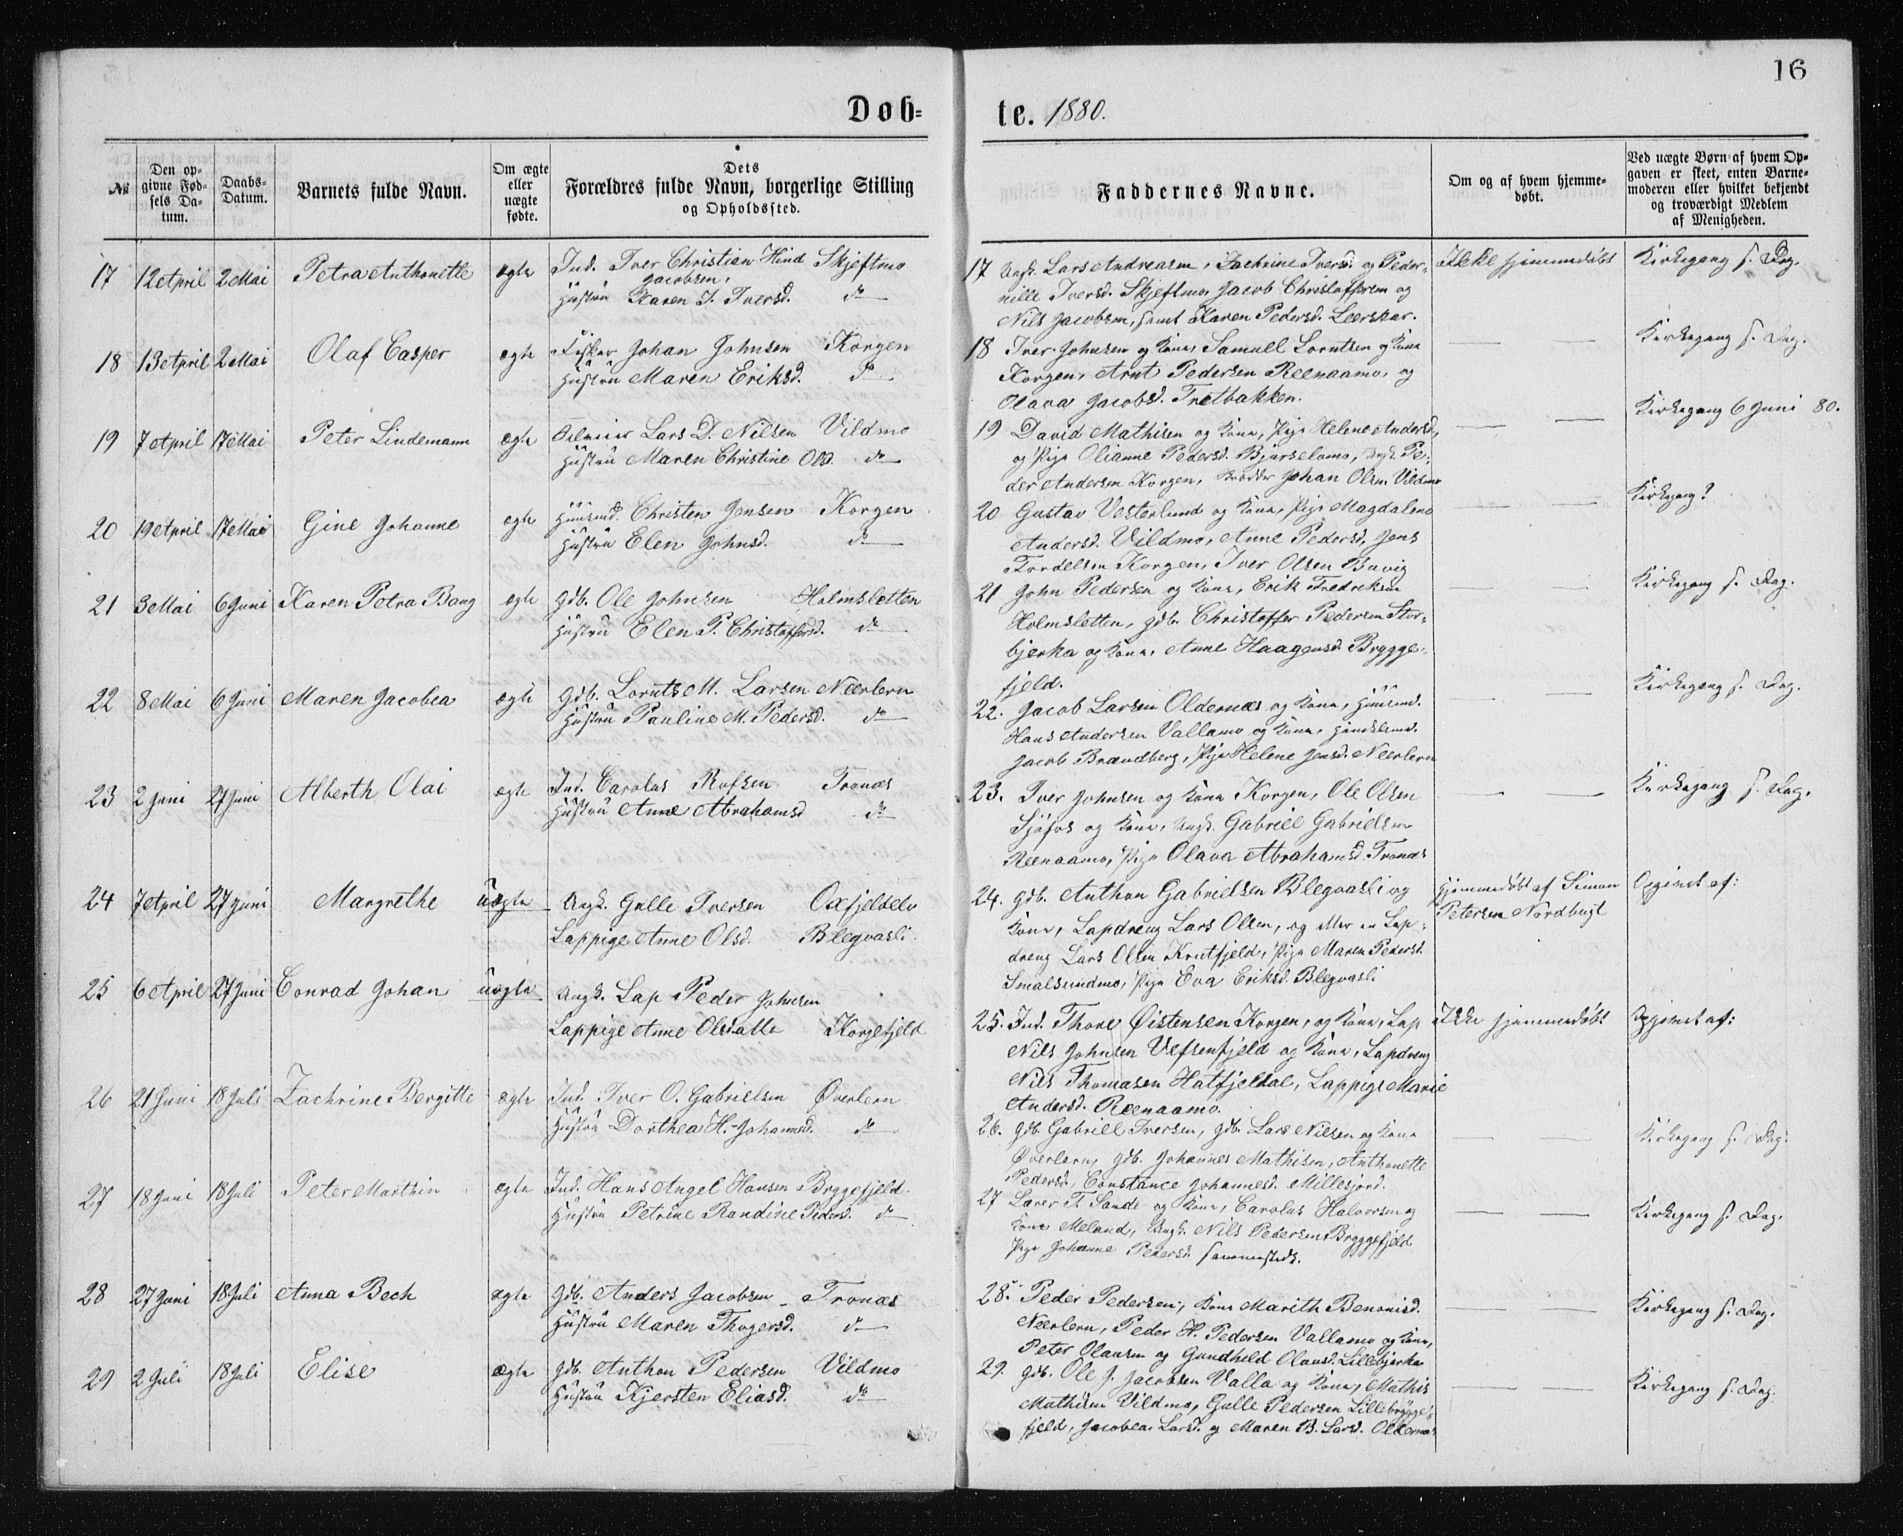 16
Døb=
te. 1880.
№
Den op-
givne Fød-
sels Da-
tum.
Daabs-
Datum.
Barnets fulde Navn.
Om ægte
eller
uægte
fødte.
Dets
Forældres fulde Navn, borgerlige Stilling
og Opholdssted.
Faddernes Navne.
Om og af hvem hjemme-
døbt.
Ved uægte Børn af hvem Op-
gaven er skeet, enten Barne-
moderen eller hvilket bekjendt
og troværdigt Medlem
af Menigheden.
17 12 April 2 Mai Petra Anthonette ægte Ind. Iver Christian Hind Skjeftmo
Jacobsen,
Hustru Karen J. Iversd. do
17 Ungk. Lars Andreasen, Zachrine Iversd. og Peder-
nille Iversd. Skjeftmo, Jacob Christoffersen og
Nils Jacobsen, samt Karen Pedersd. Leerskar.
Ikke hjemmedøbt
Kirkegang s. Dag.
18 13 April 2 Mai Olaf Casper ægte Fisker Johan Johnsen Korgen
Hustru Maren Eriksd. do
18 Iver Johnsen og Kone, Samuel Lorntsen og Kone
Korgen, Arnt Pedersen Reenaamo, og
Olava Jacobsd. Tretbakken.
Kirkegang s. Dag.
19 7 April 17 Mai Peter Lindemann ægte Lars D. Nilsen Vildmo
Hustru Maren Christine Olsd. do
19 David Mathisen og Kone, Pige Helene Andersd,
og Pige Olianne Pedersd. Bjurselmo, Ungk. Pe-
der Andersen Korgen, Johan Olsen Vildmo
Kirkegang 6 Juni 80.
20 19 April 17 Mai Gine Johanne ægte Huusmd. Christen Jensen Korgen
Hustru Elen Johnsd. do
20 Gustav Vesterlund og Kone, Pige Magdalena
Andersd. Vildmo, Anne Pedersd, Jens
Korgen, Iver Olsen Bavig
Kirkegang?
21 3 Mai 6 Juni Karen Petra Bang ægte Gdb. Ole Johnsen Holmsletten
Hustru Elen P. Christoffersd. do
21 John Pedersen og Kone, Erik Fredriksen
Holmsletten, Gdb. Christoffer Pedersen Stor-
bjerka og Kone, Anne Haagensd. Brygge-
fjeld.
Kirkegang s. Dag.
22 8 Mai 6 Juni Maren Jacobea ægte Gdb. Lornts M. Larsen Neerlern
Hustru Pauline M. Pedersd. do
22. Jacob Larsen Oldernæs og Kone, Huusmd.
Hans Andersen Vallamo og Kone,
Jacob Brændberg, Pige Helene Jensd. Neerlern
Kirkegang s. Dag.
23 2 Juni 27 Juni Alberth Olai ægte Ind. Carolus Rolfsen Tronæs
Hustru Anne Abrahamsd do
23. Iver Johnsen og Kone Korgen, Ole Olsen
Sjøfos og Kone, Ungk. Gabriel Gabrielsen
Reenaamo, Pige Olava Abrahamsd. Tronæs
Kirkegang s. Dag.
24 7 April 27 Juni Margrethe uægte Ungk. Gulle Iversen Oxfjeldelv
Lappige Anne Olsd. Blegvasli
24. Gdb. Anthon Gabrielsen Blegvasli og
Kone, Lapdreng Lars Olsen, og Lap-
dreng Lars Olsen Krutfjeld, Pige Maren Pedersd.
Smalsundmo, Pige Eva Eriksd. Blegvasli
Hjemmedøbt af Simon
Petersen Nordbugt
Opgivet af:
25 6 April 27 Juni Conrad Johan uægte Ungk. Lap Peder Johnsen
Lappige Anne Olsdatter Korgefjeld
25. Ind. Thore Øistensen Korgen, og Kone, Lap
Nils Johnsen Vefsenfjeld og Kone, Lapdreng
Nils Thomasen Hatfjeldal, Lappige Marie
Andersd. Reenaamo.
Ikke hjemmedøbt
Opgivet af:
26 21 Juni 18 Juli Zachrine Bergitte ægte Ind. Iver O. Gabrielsen Øverlern
Hustru Dorthea H. Johannesd. do
26. Gdb. Gabriel Iversen, Gdb. Lars Nilsen og Kone
Øverlern, Gdb. Johannes Mathisen, Anthonette
Pedersd, Constance Johannesd. Millesjord.
Kirkegang s. Dag.
27 18 Juni 18 Juli Peter Marthin ægte Ind. Hans Angel Hansen Bryggefjeld.
Hustru Petrine Randine Pedersd. do
27 Lærer T. Sande og Kone, Carolus Halvorsen og
Kone Meland, Ungk. Nils Pedersen Bryggefjeld
Pige Johanne Pedersd. sammesteds.
Kirkegang s. Dag.
28 27 Juni 18 Juli Anna Bech ægte Gdb. Anders Jacobsen Tronæs
Hustru Maren Thogersd. do
28. Peder Pedersen, Kone Marith Benonisd.
Neerlern, Peder H. Pedersen Vallamo og Kone,
Peter Olausen og Gundheld Olausd. Lillebjerka
Kirkegang s. Dag.
29 2 Juli 18 Juli Elise ægte Gdb. Anthon Pedersen Vildmo
Hustru Kjersten Eliasd. do
29. Gdb. Ole J. Jacobsen Valla og Kone, Mathis
Mathisen Vildmo, Gulle Pedersen Lillebrygge-
fjeld, Jacobea Larsd. og Maren B. Larsd. Oldernæs
Kirkegang s. Dag.